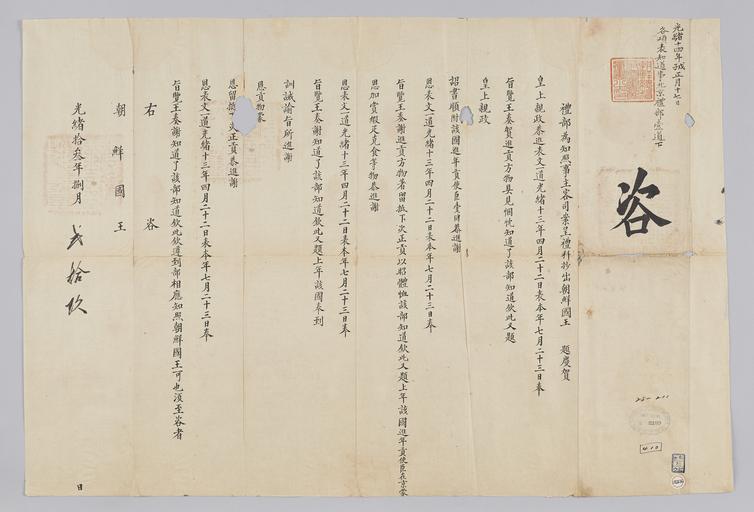 光緖十四年戊正月十七日
各項表知道事北京禮部壹道下
咨
禮部爲知照事主客司案呈禮科抄出朝鮮國王 題慶賀
皇上親政恭進表文一道光緖十三年四月二十二日表本年七月二十三日奉
旨覽王奏賀進貢方物具見悃忱知道了該部知道欽此又題
皇上親政
詔書順附該國進年貢使臣賫回恭進謝
恩表文一道光緖十三年四月二十二日表本年七月二十三日奉
旨覽王奏謝進貢方物著留抵下次正貢以昭體恤該部知道欽此又題上年該國進年貢使臣在京蒙
恩加賞緞疋克食等物恭進謝
恩表文一道光緖十三年四月二十二日表本年七月二十三日奉
旨覽王奏謝知道了該部知道欽此又題上年該國奉到
訓誡諭旨所進謝
恩貢物蒙
恩留抵 次正貢恭進謝
恩表文一道光緖十三年四月二十二日表本年七月二十三日奉
旨覽王奏謝知道了該部知道欽此欽遵到部相應知照朝鮮國王可也須至咨者
右 咨
朝鮮國王
光緖拾叁年捌月 貳拾玖 日